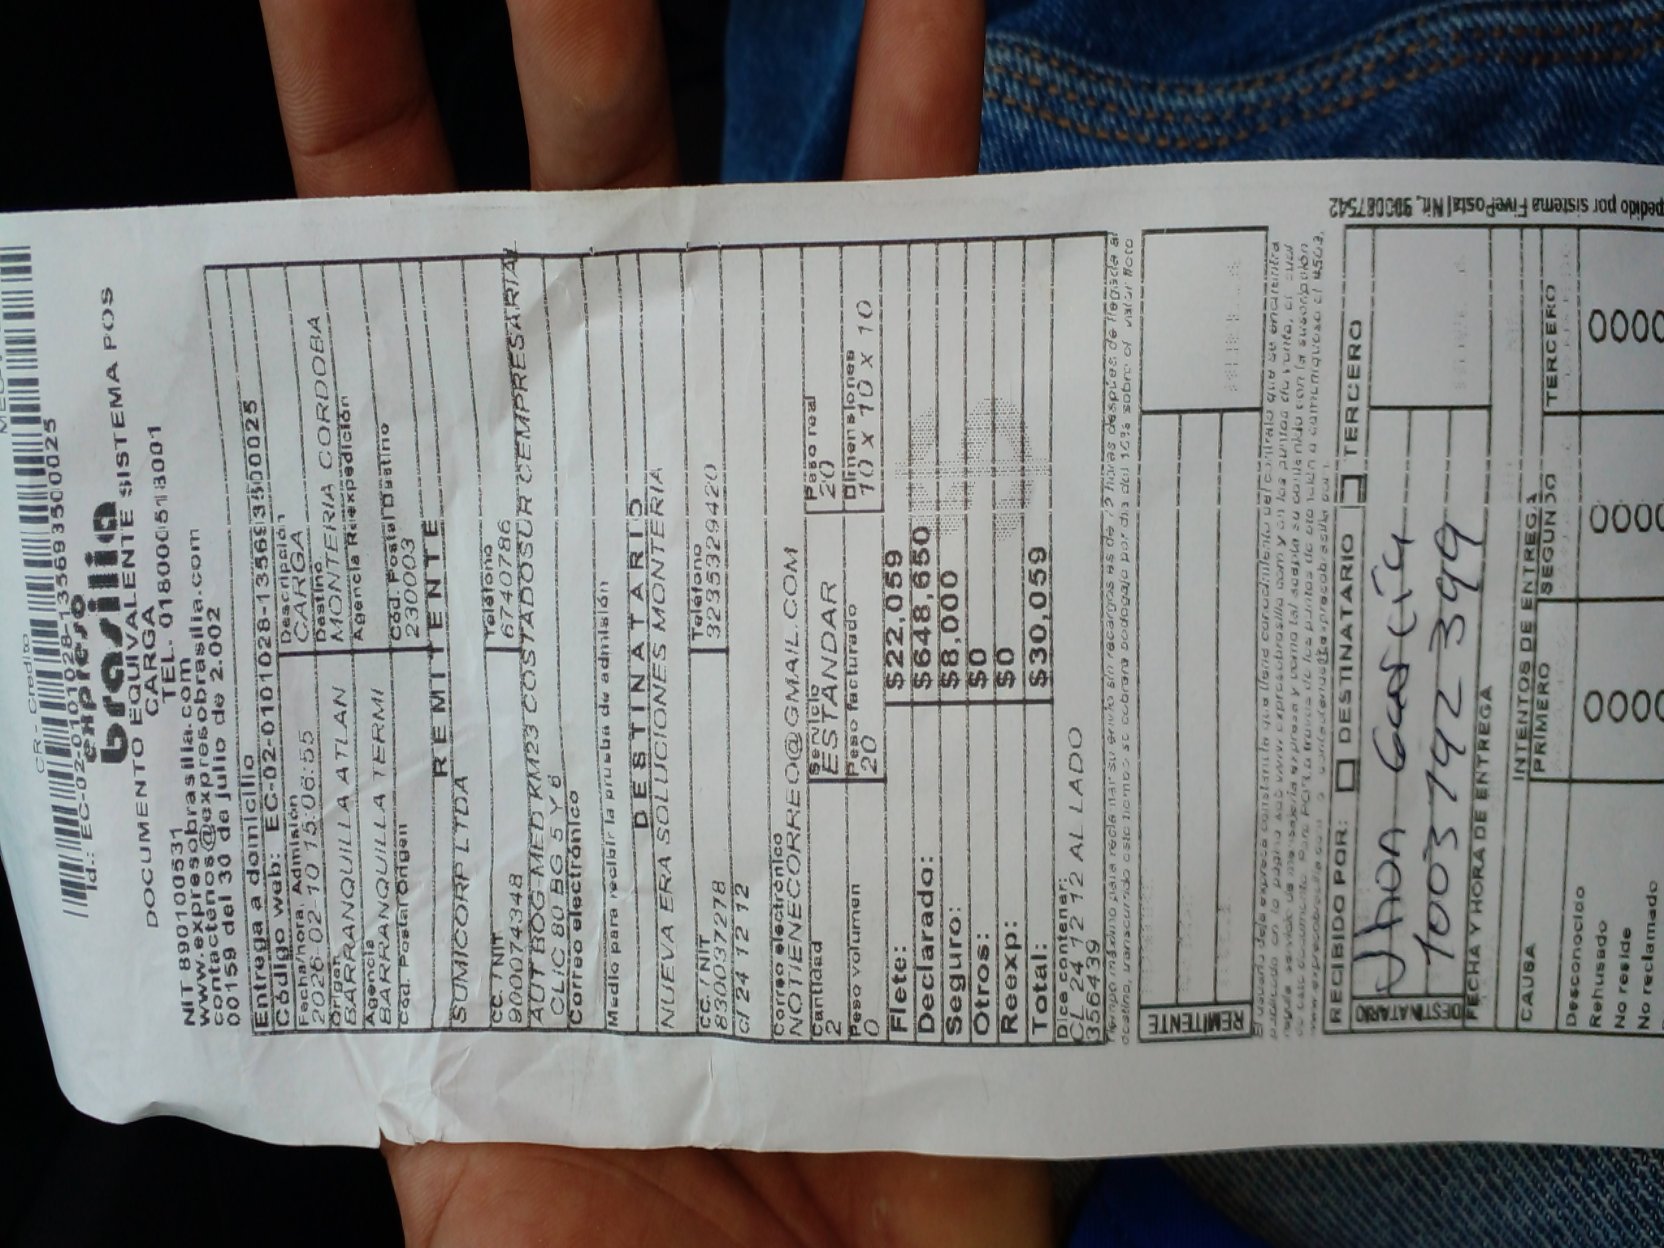 CR - Credito
Id.: EC-02-0101028-13569350 0025
expreso
brasilia
DOCUMENTO EQUIVALENTE SISTEMA POS
CARGA
TEL. 018000518001
NIT 890100531
www.expresobrasilia.com
contactenos@expresobrasilia.com
00159 del 30 de julio de 2.002
Entrega a domicilio
Código web: EC-02-0101028-135693500025
Fecha/hora. Admisión
2026-02-10 15:06:55
Descripción
CARGA
Origen
BARRANQUILLA ATLAN
Destino
MONTERIA CORDOBA
Agencia
BARRANQUILLA TERMI
Agencia Reexpedición
Cód. Postal Origen
Cód. Postal Destino
230003
REMITENTE
SUMICORP LTDA
CC. / NIT
900074348
Teléfono
6740786
AUT BOG-MED KM23 COSTADOSUR CEMPRESARIAL
CLIC 80 BG 5 Y 6
Correo electrónico
Medio para recibir la prueba de admisión
DESTINATARIO
NUEVA ERA SOLUCIONES MONTERIA
CC. / NIT
830037278
Teléfono
3235329420
cl 24 12 12
Correo electrónico
NOTIENECORREO@GMAIL.COM
Cantidad
2
Servicio
ESTÁNDAR
Peso real
20
Peso volumen
0
Peso facturado
20
Dimensiones
10 x 10 x 10
Flete: $22,059
Declarado: $648,650
Seguro: $8,000
Otros: $0
Reexp: $0
Total: $30,059
Dice contener:
CL 24 12 12 AL LADO
356439
REMITENTE
pedido por sistema FivePostal Nit. 900087542
RECIBIDO POR: DESTINATARIO TERCERO
DESTINATARIO
Jhon García
1003 192 399
FECHA Y HORA DE ENTREGA
INTENTOS DE ENTREGA
CAUSA PRIMERO SEGUNDO TERCERO
Desconocido
Rehusado
No reside
No reclamado
0000 0000 0000